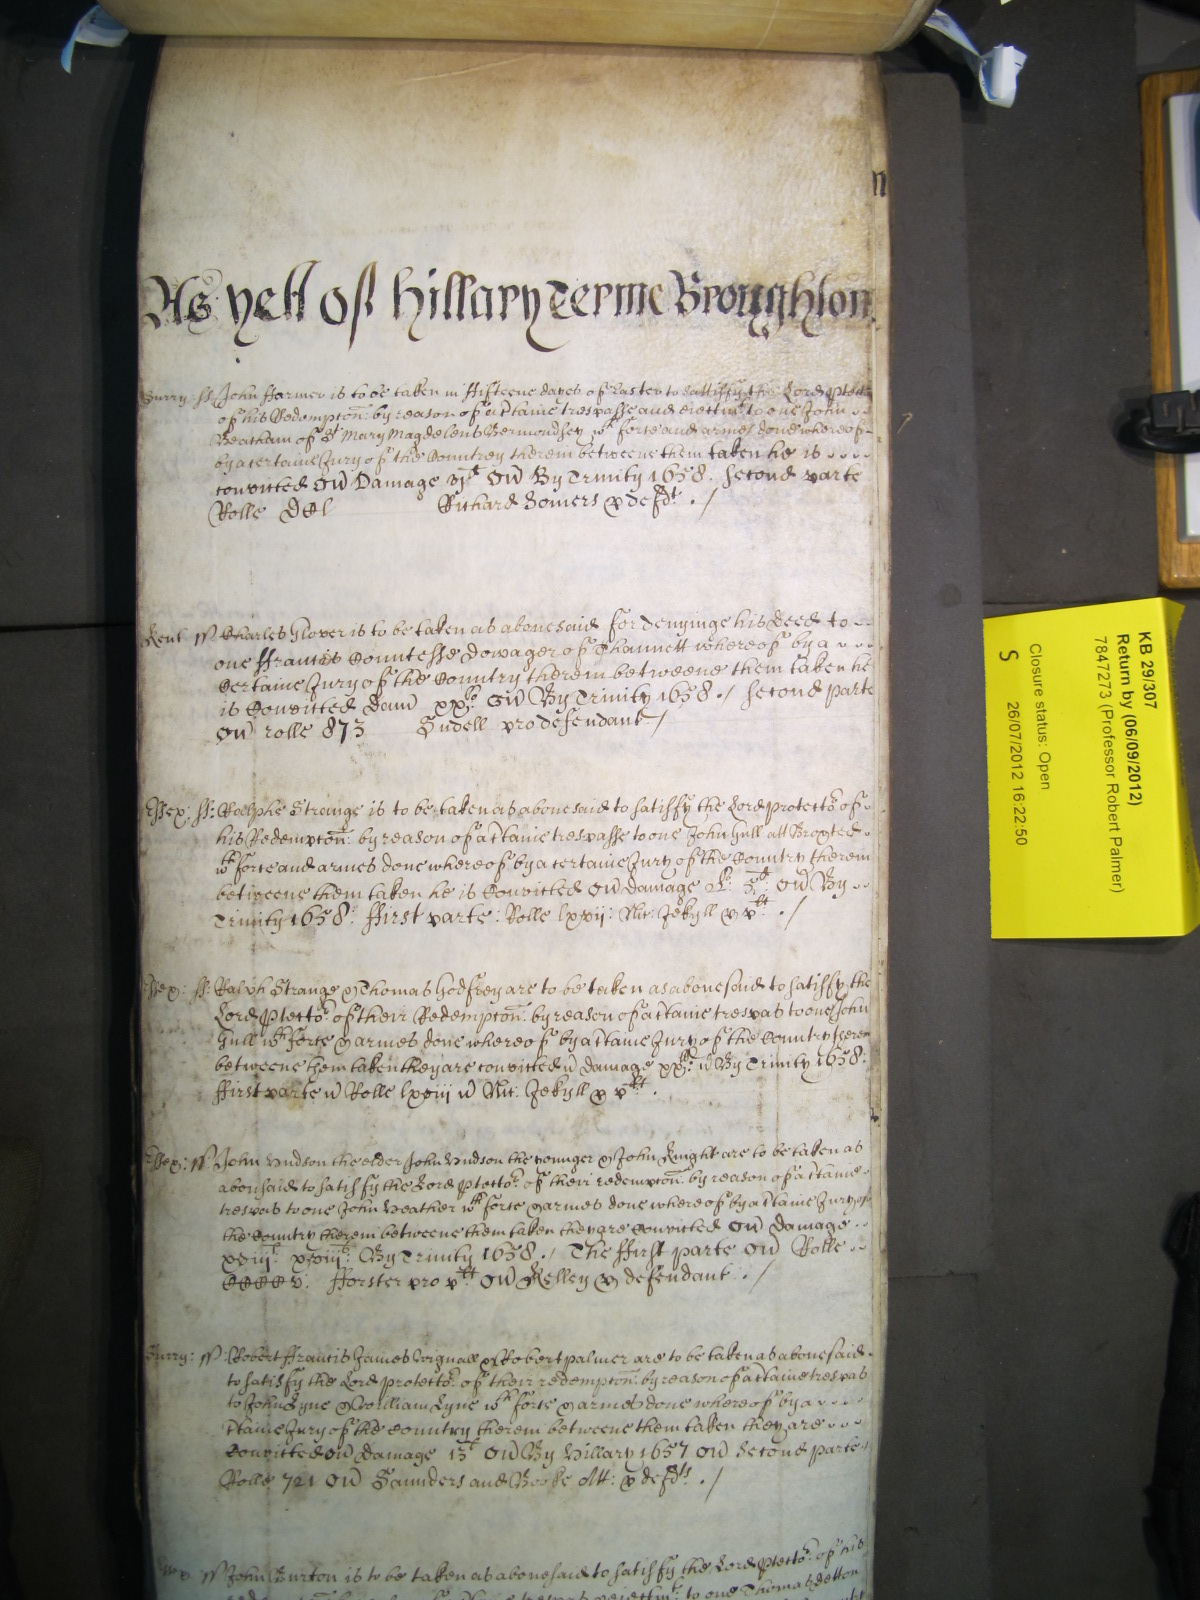 As yett of Hillary Terme Broughton
Surry ss John Farmer is to be taken in ffifteene dayes of Easter to sattiffy the Lord Ptectr
of his Redempcon by reason of a ctaine trespasse and eiectmt to one John
Beatham of St Mary Magdelens Bermondsey wth force and armes done whereof
by a certaine Jury of the Countrey therein betweene them taken he is
convicted Damage vjd By Trinity 1658. Second parte
Rolle Richard Somers p defdt ./
Kent ss Charles Glover is to be taken as abovesaid for denyinge his deed to
one ffrancis Countesse Dowager of Thannett whereof by a
Certaine Jury of the Country therein betweene them taken he
is Convicted Dam xxs By Trinity 1658 ./ Second parte
rolle 873 Sudell pro defendant /
Essex: ss: Roelphe Strange is to be taken as abovesaid to satisfy the Lord protector of
his Redempcon: by reason of a ctaine trespasse to one John Hull att Broxted
wth force and armes done whereof by a certaine Jury of the Country therein
betweene them taken he is Convicted Damage By
Trinity 1658: ffirst parte: Rolle lxxij: Mic: Jekyll p plt ./
Essex: ss: Ralph Strange & Thomas Godfrey are to be taken as abovesaid to satisfy the
Lord Ptector of their Redempcon by reason of a ctaine trespas to one John
Hull wth force & armes done whereof by a ctaine Jury of the Country therein
betweene them taken they are convicted damage By Trinity 1658:
ffirst parte Rolle lxxiij Mic: Jekyll p plt .
Essex: ss John Hudson the elder John Hudson the younger & John Knight are to be taken as
abovsaid to satisfy the Lord Ptector of their redempcon by reason of a ctaine
trespas to one John Heather wth force & armes done whereof by a ctaine Jury of
the Country therein betweene them taken they are Convicted Damage
By Trinity 1658 ./ The ffirst parte Rolle
CCCC v: fforster pro plt Kelley p defendant ./
Surry: ss: Robert ffrancis James Wignall & Robert Palmer are to be taken as abovesaid
to satisfy the Lord protector of their redempcon by reason of a ctaine trespas
to John Lyne & William Lyne wth force & armes done whereof by a
ctaine Jury of the Country therein betweene them taken they are
Convicted Damage By Hillary 1657 Second parte
Rolle 721 Saunders and Booke Att: p defdts ./
ss John Burton is to be taken as abovesaid to satisfy the Lord Ptector of his
to one Thomas
KB 29/307
Return by (06/09/2012)
7847273 (Professor Robert Palmer)
Closure status: Open
S 26/07/2012 16:22:50